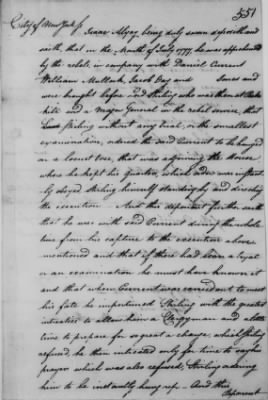 551
City of New York ss
Isaac Algar being duly sworn deposeth and
saith, that in the Month of July 1777, he was apprehended
by the rebels, in company with Daniel Current
William Mullock, Jacob Day and Jones and
were brought before Lord Stirling who was then at
and a Major General in the rebel service, that
Lord Stirling without any trial, or the smallest
examination, ordered the said Current to be hanged
on a locust tree, that was adjoining the House
where he kept his quarters, which was
by obeyed Stirling himself standing by and directing
the execution And this deponent further saith
that he was with said Current during the whole
time from his capture to the execution above
mentioned and that if there had been a tryal
or an examination he must have known it
and that when Current was carried out to meet
his fate he importuned Stirling with the greatest
intreaties to allow him a Clergyman and a little
time to prepare for so great a change, which Stirling
refused, he then intreated only for time to say his
prayer which was also refused, Stirling ordering
him to be instantly hung up. And this
deponent